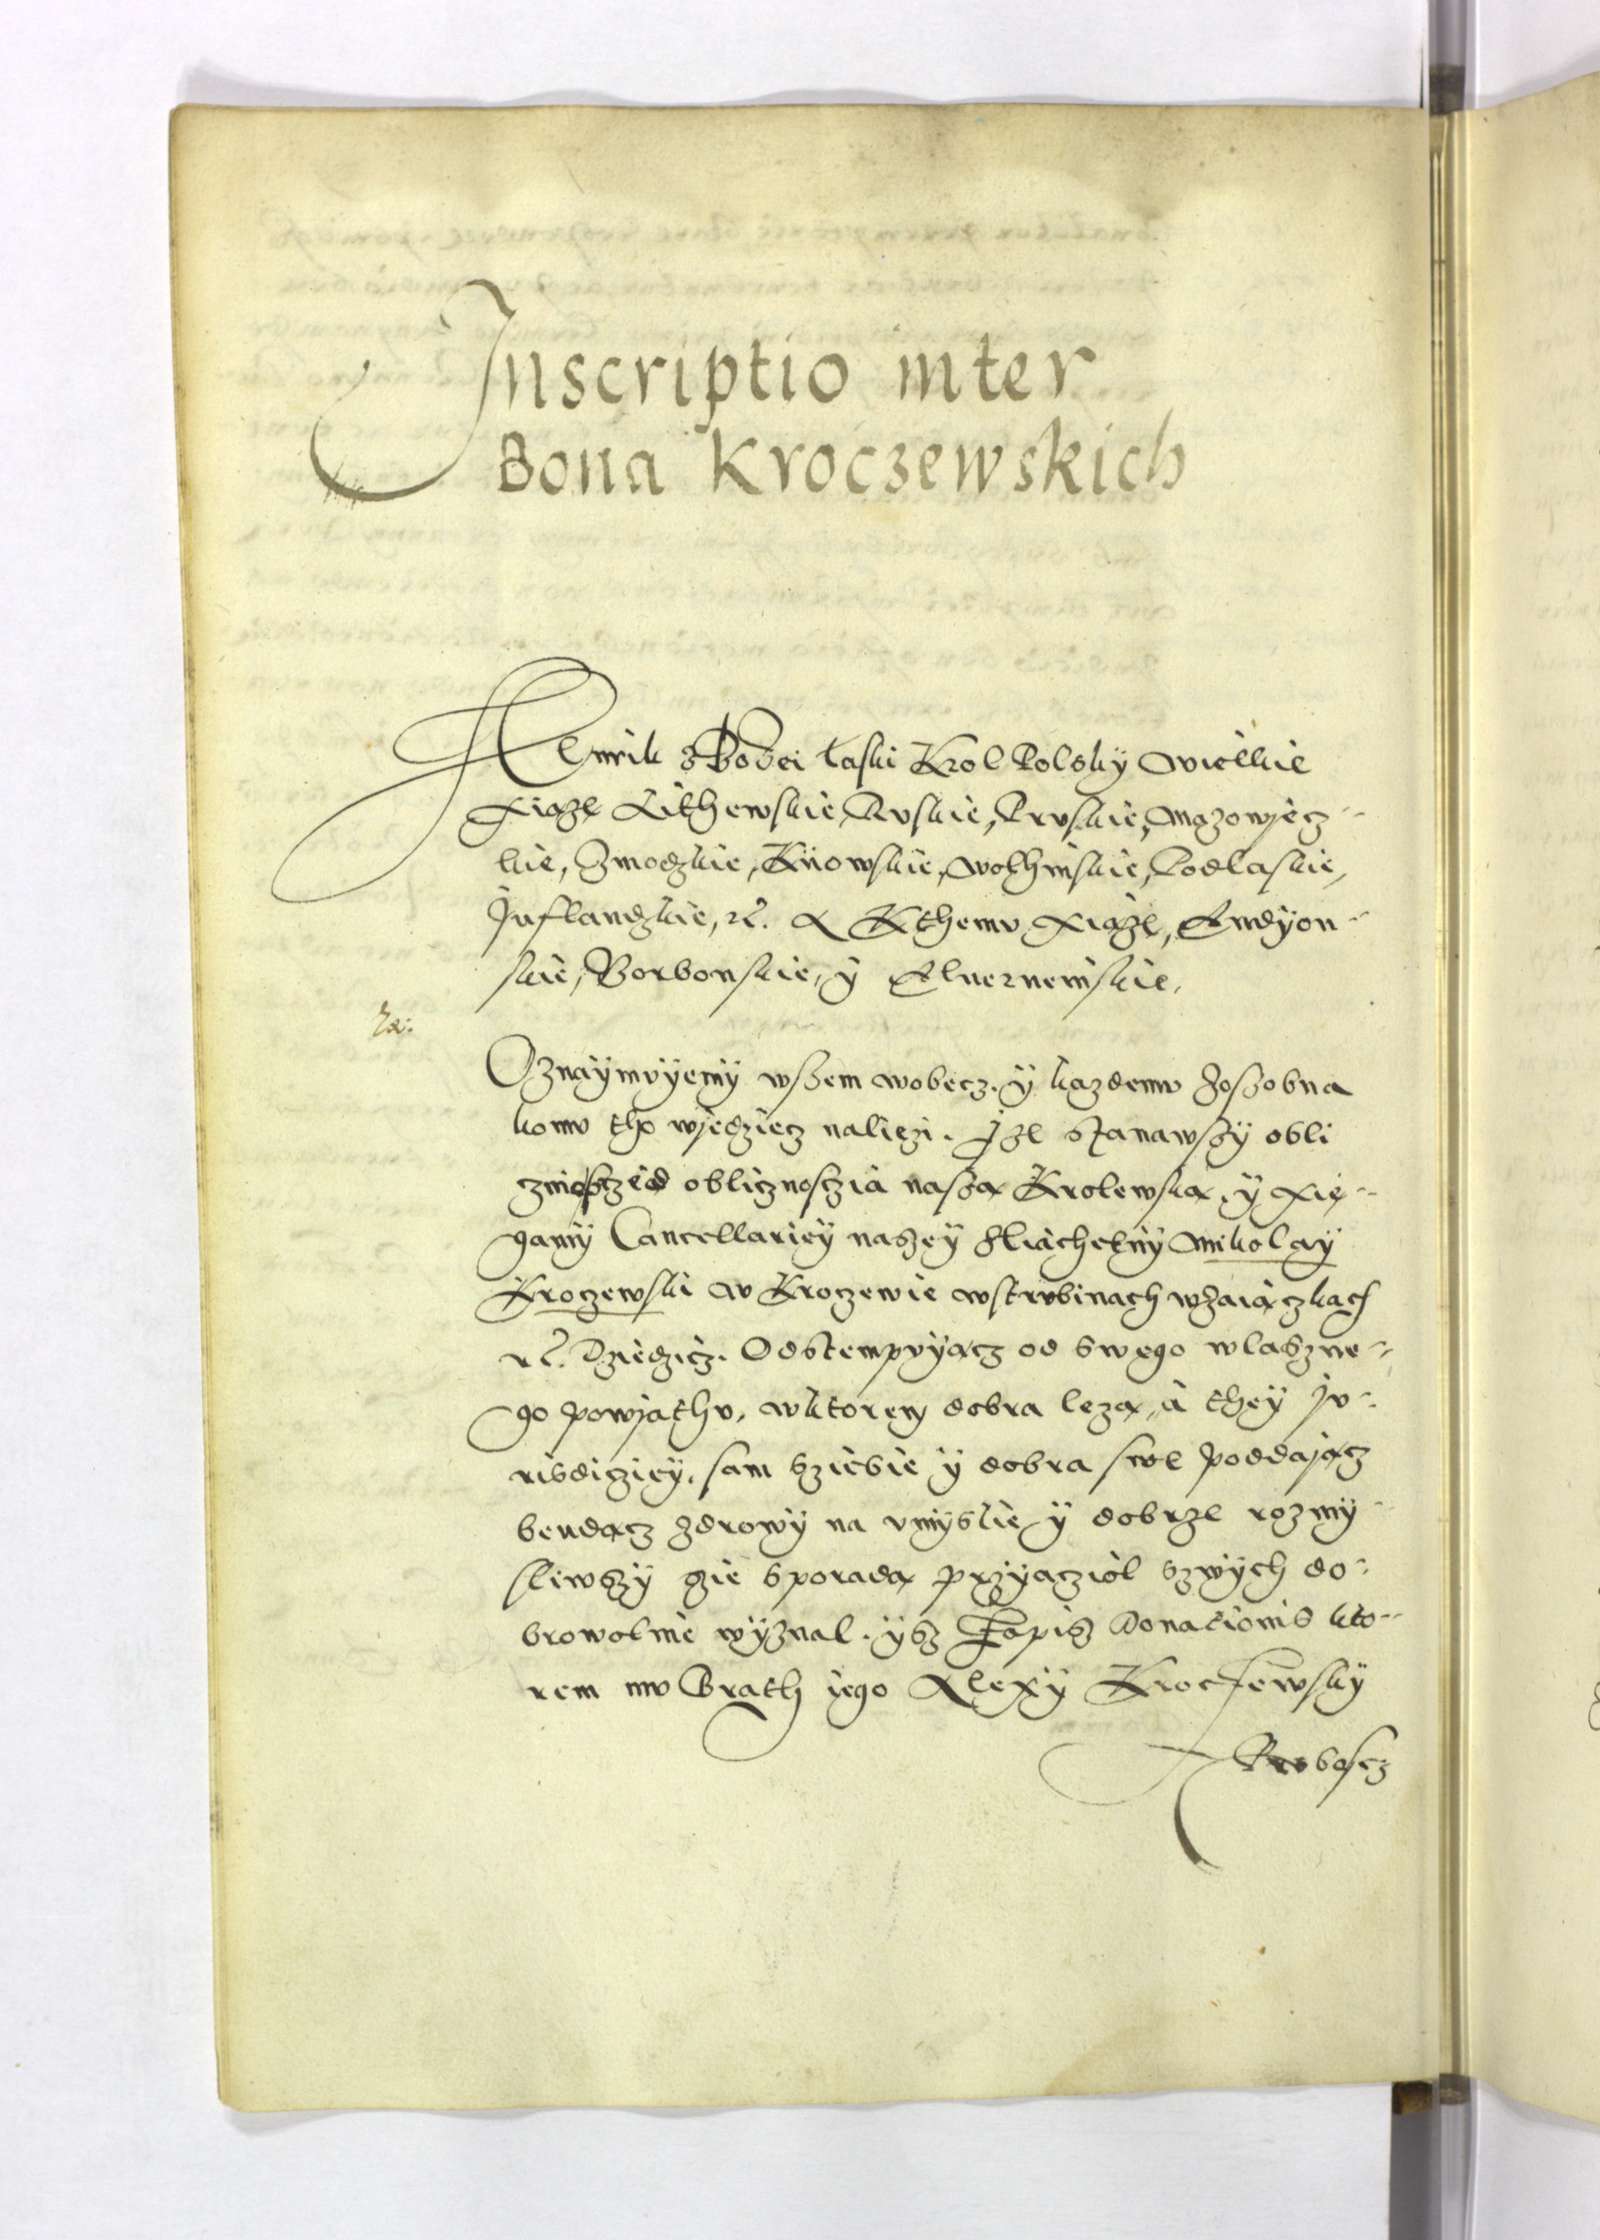 Inscriptio inter
Bona Kroczewskich
Henrik z Bozei łaski Krol Polsky Wielkie
Xiąze Lithewskie, Ruskie, Pruskie, Mazowiecz-
kie, Zmodzkie, Kiiowskie, Wolhinskie, Podlaskie,
Inflandzkie, etc. A Kthemu Xiąze, Andyon-
skie, Borbonskie, ÿ Alverneinskie.
Oznaÿmuÿemÿ wszem wobecz. ÿ kazdemu zoszobna
komu tho wjedziecz naliezi. Jze stanawszÿ obli
cznie przed oblicznosczia naszą Krolewską, ÿ xię-
gamÿ Cancellarieÿ naszeÿ sliachetnÿ Mikolaÿ
Kroczewski w Kroczewie wstrubinach wzaiączkach
etc. Dziedzicz. Odstempuÿącz od swego wlaszne-
go powjathu, wktorem dobra lezą, à theÿ Ju-
risdiczieÿ, sam sziebie ÿ dobra swe poddającz
bendącz zdrowÿ na umÿslie ÿ dobrze rozmÿ-
sliwszÿ szie sporadą przÿacziol szwÿch do-
browolnie wÿznal. ÿsz Zapisz Donationis kto-
rem mu Brath iego Alexÿ Kroczewskÿ
Proboscz